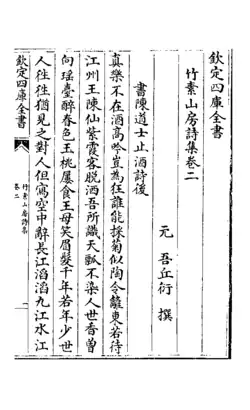 欽定四庫全書
竹素山房詩集卷二
元 吾丘衍 撰
書陳道士止酒詩後
真樂不在酒高吟豈為狂誰能採菊似陶令籬東若待
江州王陳仙紫霞客脫酒吾所識天瓢不染人世香曽
向瑶臺醉春色玉桃屢食王母笑眉髮千年若年少世
人往往猶見之對人但寫空中辭長江滔滔九江水江
欽定四庫全書
竹素山房詩集
卷二